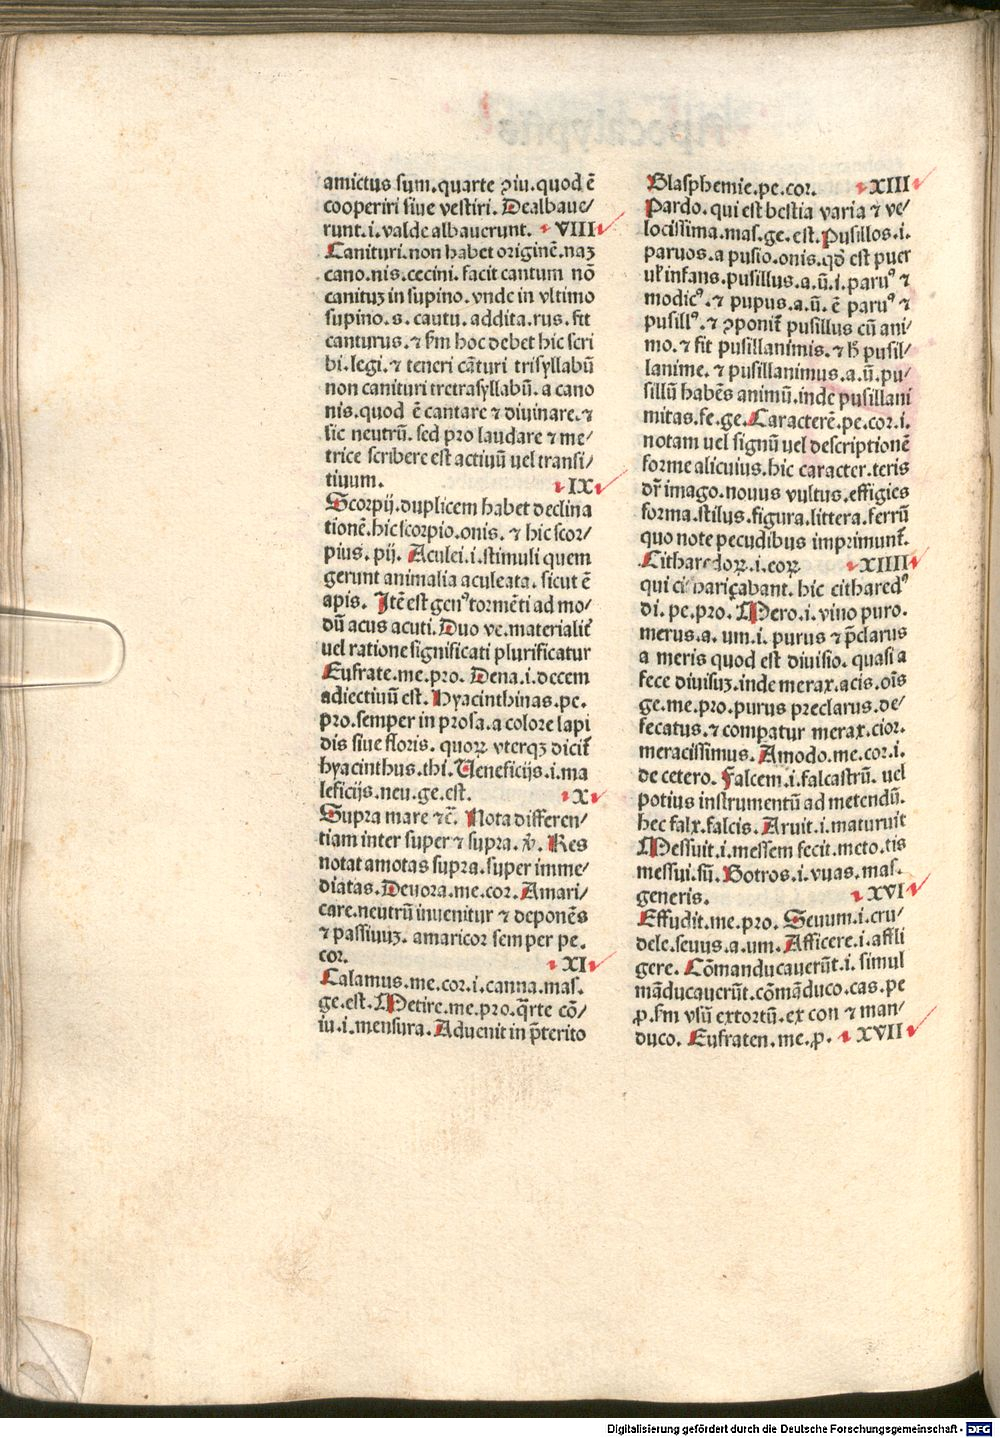 amictus sum.quarte ꝯiu.quod ē
cooperiri siue vestiri. Dealbaue/
runt.i.valde albauerunt. VIII
Canituri.non habet originē.naꝫ
cano.nis.cecini.facit cantum nō
canituꝫ in supino.vnde in vltimo
supino.s.cautu.addita.rus.fit
canturus.⁊ ẜm hoc debet hic scri
bi.legi.⁊ teneri cāturi trisyllabū
non canituri tretrasyllabū.a cano
nis.quod ē cantare ⁊ diuinare.⁊
sic neutrū.sed pro laudare ⁊ me/
trice scribere est actiuū uel transi/
tiuum. IX
Scorpij.duplicem habet declina
tionē.hic scorpio.onis.⁊ hic scor/
pius.pij. Aculei.i.stimuli quem
gerunt animalia aculeata.sicut ē
apis. Itē est genꝰ tormēti ad mo/
dū acus acuti.Duo ve.materialit̄
uel ratione significati plurificatur
Eufrate.me.pro. Dena.i.decem
adiectiuū est. Hyacinthinas.pe.
pro.semper in prosa.a colore lapi
dis siue floris. quoꝝ vterqꝫ dicit̄
hyacinthus.thi.Ueneficijs.i.ma
leficijs.neu.ge.est. X
Supra mare ⁊c̄. Nota differen/
tiam inter super ⁊ supra. Res
notat amotas supra.super imme/
diatas.Deuora.me.cor.Amari/
care.neutrū inuenitur ⁊ deponēs
⁊ passiuuꝫ. amaricor semper pe.
cor. XI
Calamus.me.cor.i.canna.mas.
ge.est.Metire.me.pro.q̄rte cō/
iu.i.mensura.Aduenit in p̄terito
Blasphemie.pe.cor. XIII
Pardo.qui est bestia varia ⁊ ve/
locissima.mas.ge.est.Pusillos.i.
paruos.a pusio.onis.qd̄ est puer
uꝉ infans.pusillus.a.ū.i.paruꝰ ⁊
modicꝰ.⁊ pupus.a.ū.ē paruꝰ ⁊
pusillꝰ.⁊ ꝯponit̄ pusillus cū ani/
mo.⁊ fit pusillanimis.⁊ h̄ pusil/
lanime.⁊ pusillanimus.a.ū.pu/
sillū habēs animū.inde pusillani
mitas.fe.ge.Caracterē.pe.cor.i.
notam uel signū uel descriptionē
forme alicuius.hic caracter.teris
dr̄ imago.nouus vultus.effigies
forma.stilus.figura.littera.ferrū
quo note pecudibus imprimunt̄.
Citharedoꝝ.i.eoꝝ XIIII
qui citharicabant. hic citharedꝰ
di.pe.pro. Mero.i.vino puro.
merus.a.um.i.purus ⁊ p̄clarus
a meris quod est diuisio.quasi a
fece diuisuꝫ.inde merax.acis.oīs
ge.me.pro.purus preclarus.de/
fecatus.⁊ compatur merax.cior.
meracissimus. Amodo.me.cor.i.
de cetero. Falcem.i.falcastrū. uel
potius instrumentū ad metendū.
hec falx.falcis. Aruit.i.maturuit
Messuit.i.messem fecit.meto.tis
messui.sū. Botros.i.vuas.mas.
generis. XVI
Effudit.me.pro. Seuum.i.cru/
dele.seuus.a.um. Afficere.i.affli
gere. Cōmanducauerūt.i.simul
māducauerūt.cōmāduco.cas.pe
ꝓ.ẜm vsū extortū.ex con ⁊ man/
duco. Eufraten.me.ꝓ. XVII
Digitalisierung gefördert durch die Deutsche Forschungsgemeinschaft - DFG